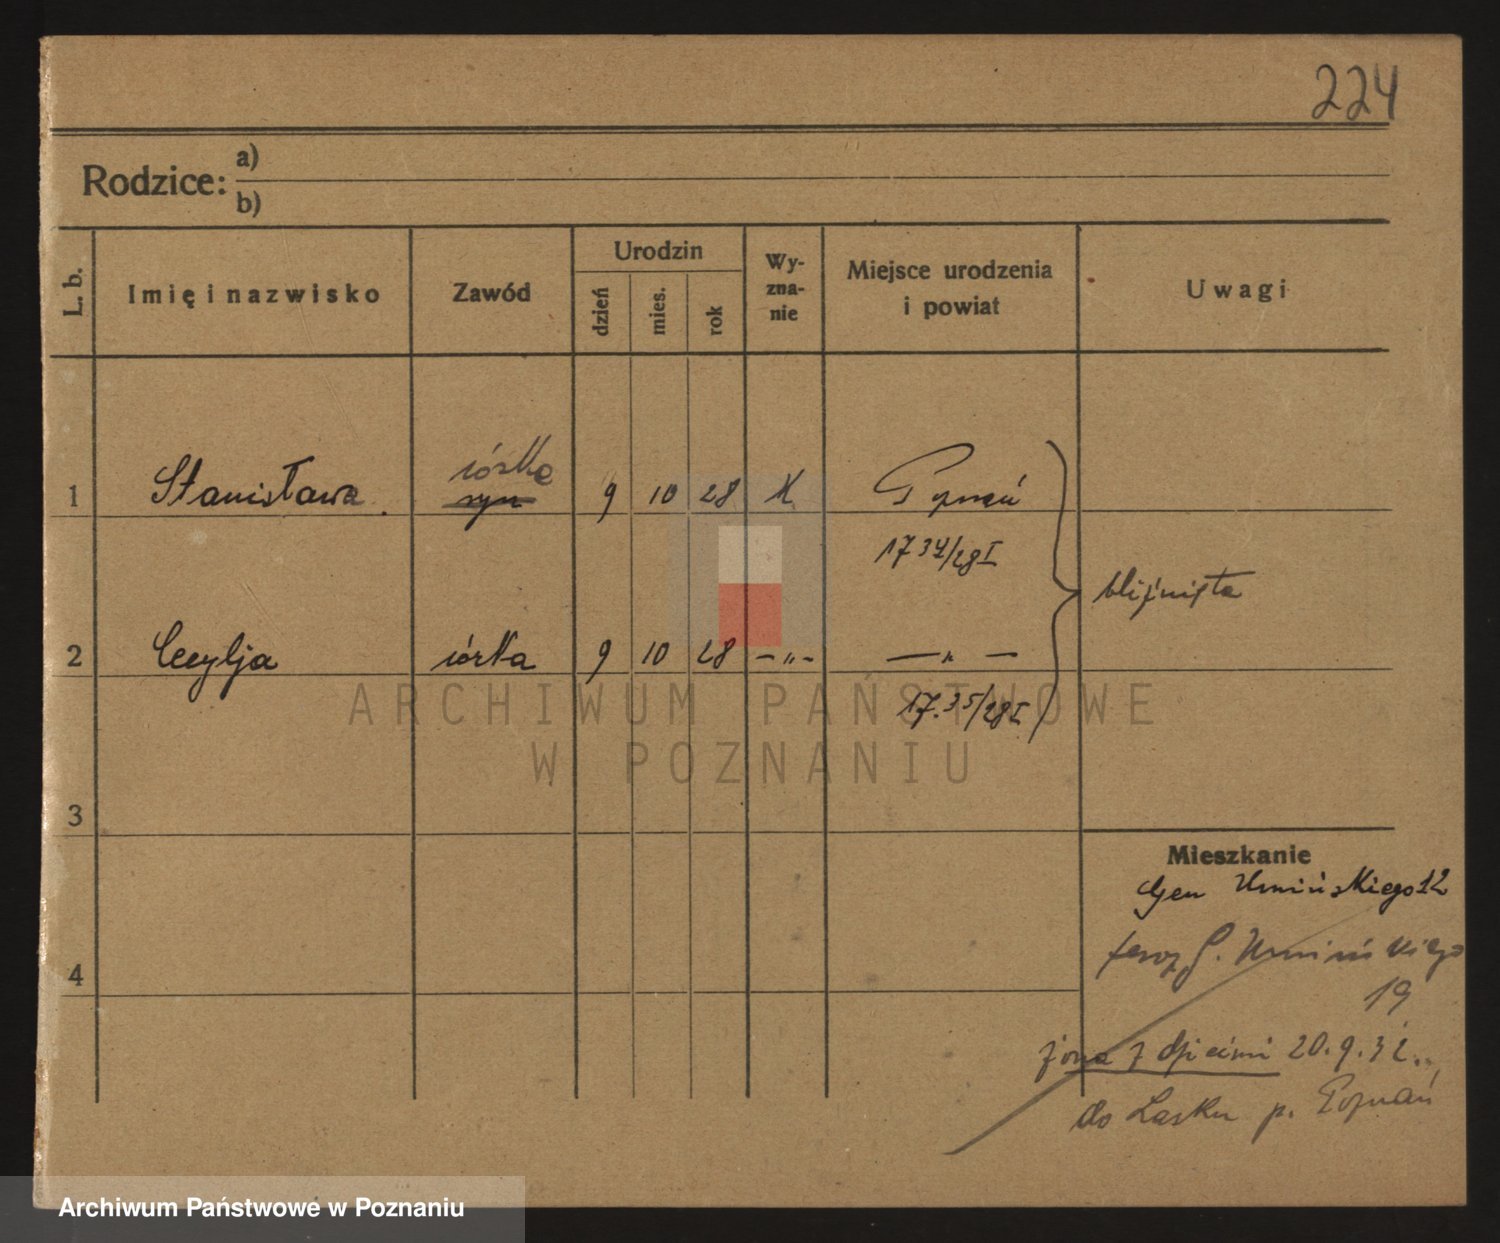 224
Rodzice: a)
b)
L. b. Imię i nazwisko Zawód Urodzin dzień mies. rok Wy-zna-nie Miejsce urodzenia i powiat Uwagi
córka
1 Stanisława syn 9 10 28 K Poznań
1734/28 I
bliźnięta
2 Cecylja córka 9 10 28 -„- -„-
1735/28 I
ARCHIWUM PAŃSTWOWE
W POZNANIU
3
Mieszkanie
Gen Umińskiego 12
4
G. Umińskiego
19
żona z dziećmi 20.9.32.
do Lasku p. Poznań
Archiwum Państwowe w Poznaniu